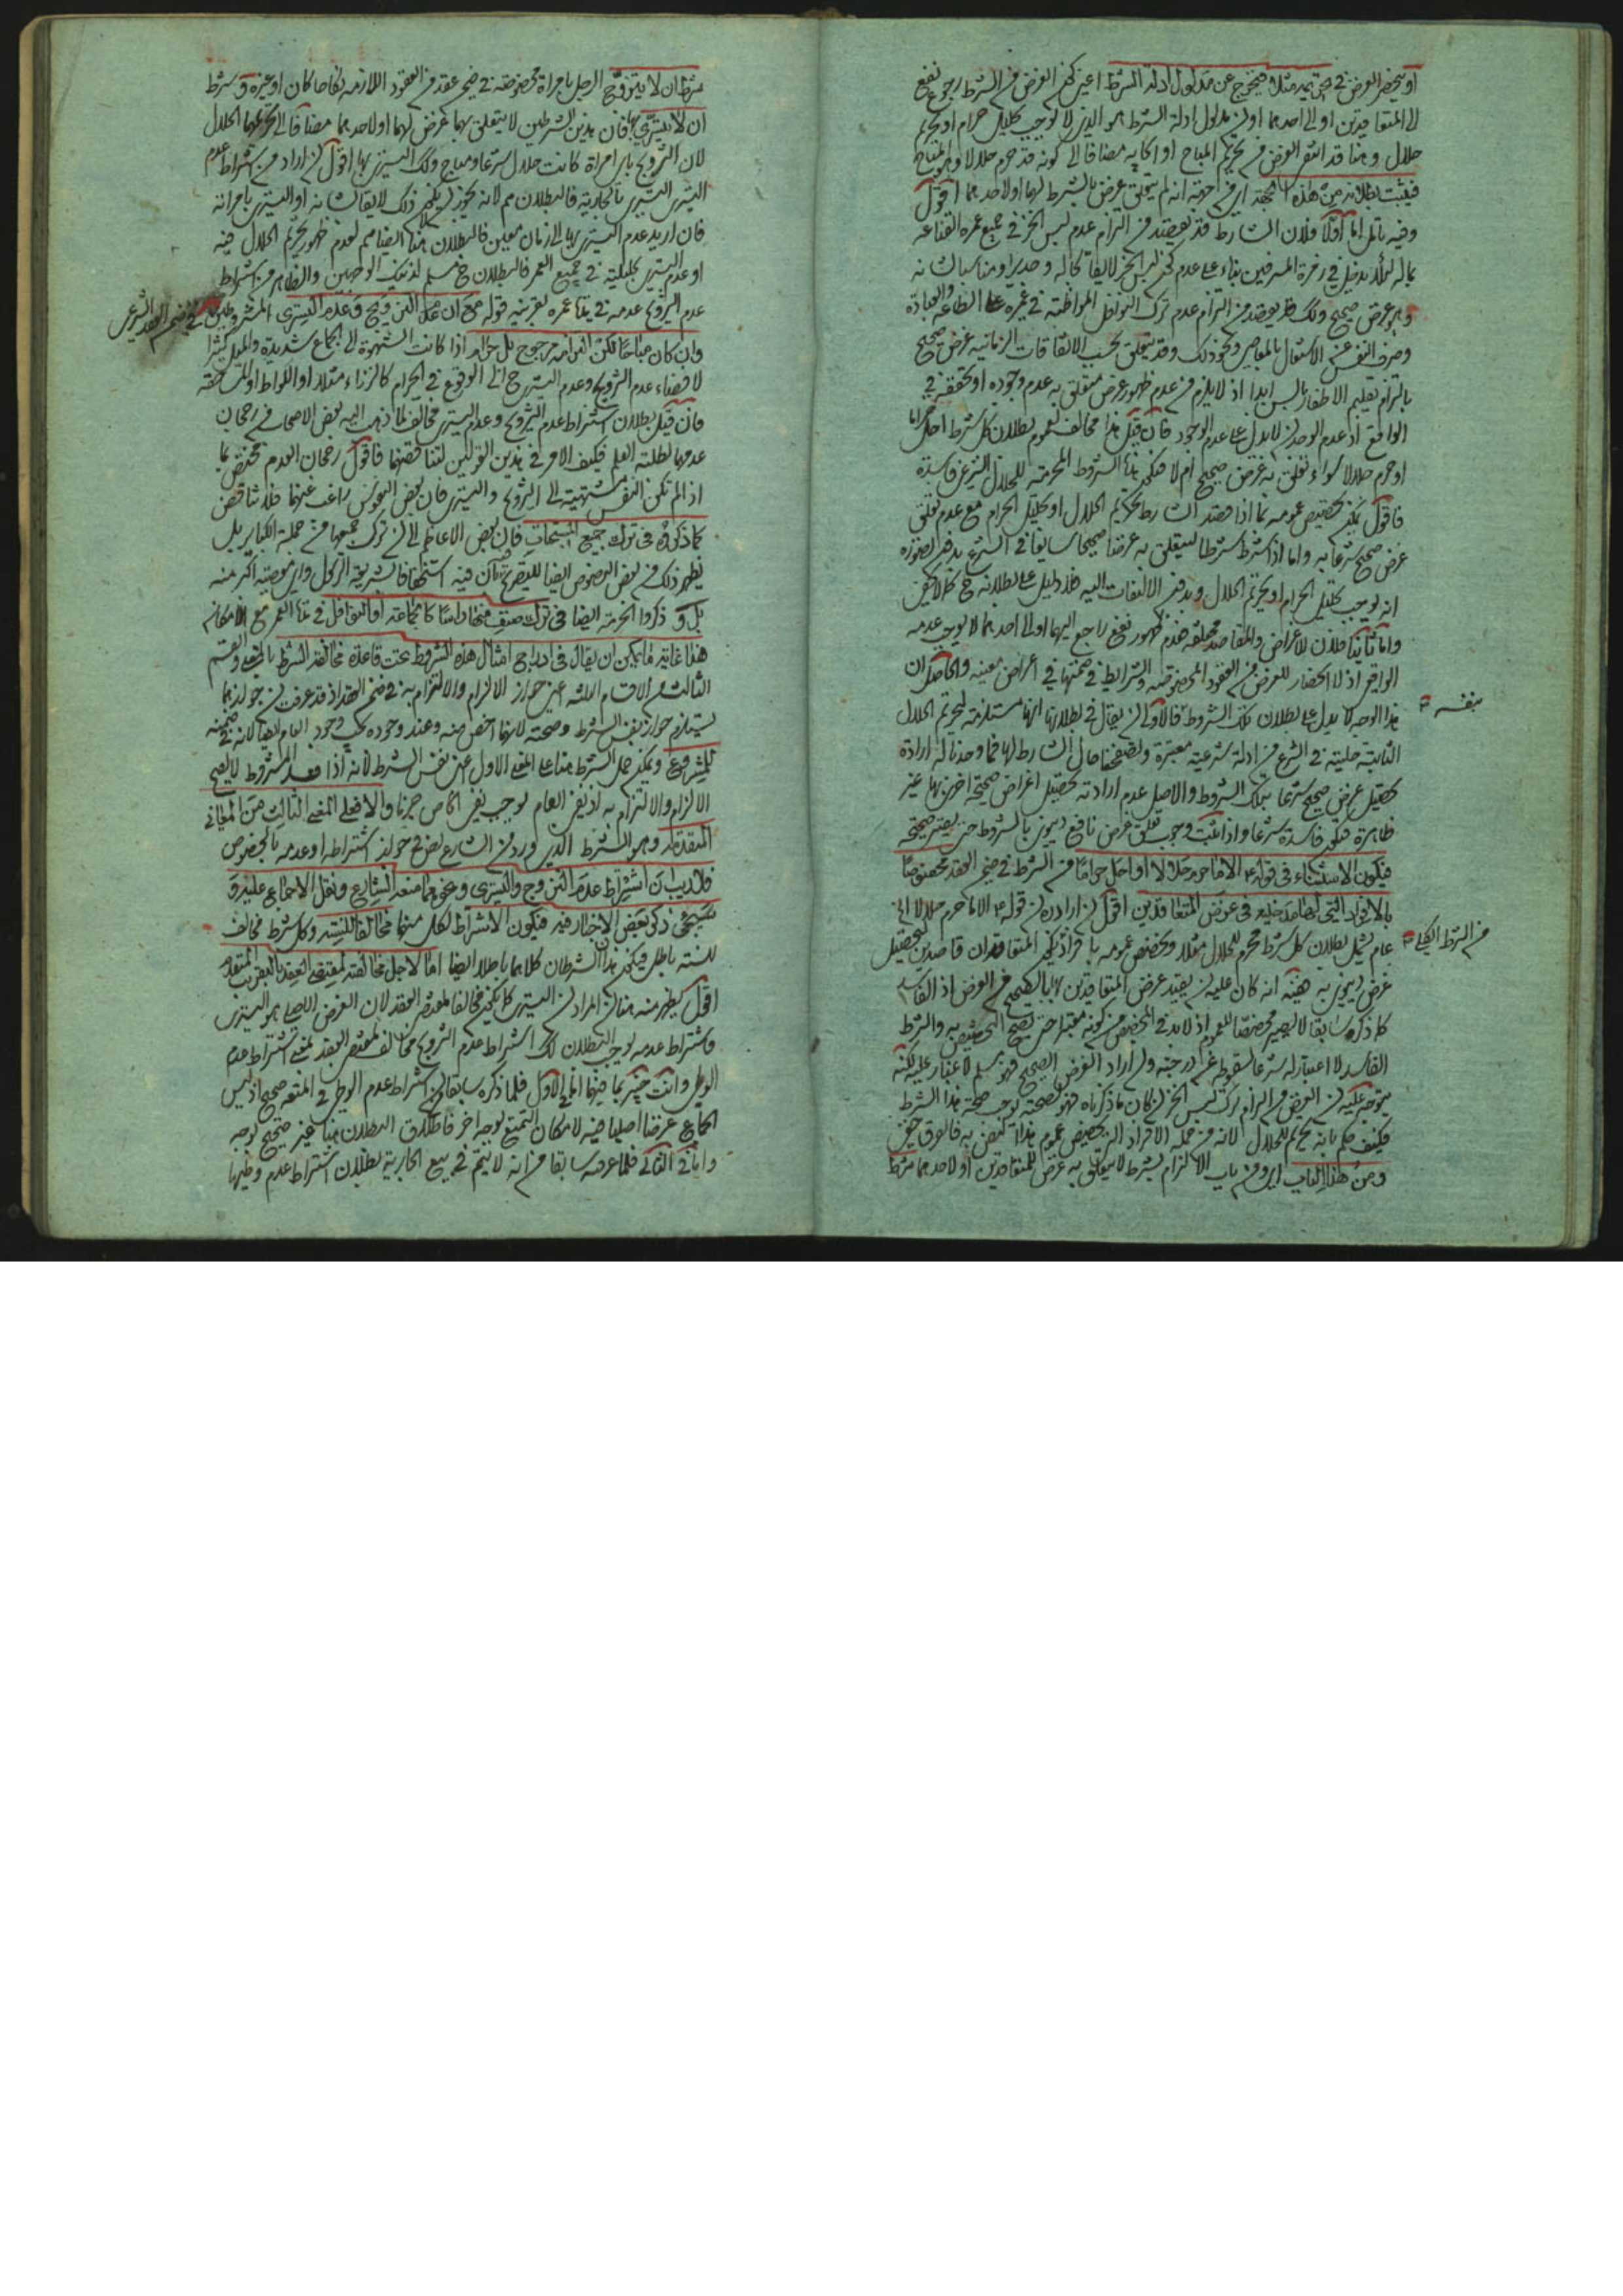 او ينحصر الغرض في حق يريد مثلا فيخرج عن مدلول ادلة الشرط اعني كون الغرض من الشرط رجوع نفع
الى المتعاقدين او الى احدهما اولى مدلول ادلة الشرط هو الذي لا يوجب تحليل حرام او تحريم
حلال وهنا قد انتفى الغرض من تحريم المباح او اكابه مضافا الى كونه قد حرم حلالا وهو المباح
فيثبت بطلانه من هذه الجهة اي من جهة انه لم يتعلق غرض بالشرط لهما او لاحدهما اقول
وفيه تأمل اما اولا فلان الشارط قد يقصد من التزام عدم لبس الخز في جميع عمره القناعة
بماله لئلا يدخل في زمرة المسرفين بناء على عدم كون لبس الخز لايقا بحاله و مناسبا لشانه
وهو غرض صحيح وكذلك قد يقصد من التزام عدم ترك النوافل المواظبة في عمره على الطاعة والعبادة
وصرف النفس عن الاشتغال بالمعاصي ونحو ذلك وقد يتعلق بحسب الاتفاقات الزمانية غرض صحيح
بالتزام تقليم الاظفار بالسن ابدا اذ لا يلزم من عدم ظهور غرض متعلق به عدم وجوده او تحققه في
الواقع اذ عدم الوجدان لا يدل على عدم الوجود فان قيل هذا مخالف لعموم بطلان كل شرط احل حراما
او حرم حلالا سواء تعلق به غرض صحيح ام لا فتكون هذه الشروط المحرمة للحلال الشرعي فاسدة
فاقول يمكن تخصيص عمومه بما اذا قصد الشارط تحريم الحلال او تحليل الحرام مع عدم تعلق
غرض صحيح شرعا به واما اذا شرط شرطا ليتعلق به غرضا صحيحا سايغا في الشرع بدون تصوره
انه يوجب تحليل الحرام او تحريم الحلال وبدون الالتفات اليه فلا دليل على بطلانه ح كما لا يخفى
واما ثانيا فلان الاغراض والمقاصد مختلفة فعدم ظهور نفع راجع اليهما او الى احدهما لا يوجب عدمه
الواقع اذ لا انحصار للغرض من العقود المخصوصة والشرايط في ضمنها في اغراض معينه والحاصل ان
هذا الوجه لا يدل على بطلان تلك الشروط فالاولى ان يقال في بطلانها انها مستلزمة لتحريم الحلال
بنفسه
الثابتة حليته في الشرع من ادلة شرعية معتبرة وتصفحنا حال الشارط لها فما وجدنا له ارادة
تحصيل غرض صحيح شرعا بتلك الشروط والاصل عدم ارادته تحصيل اغراض صحيحة اخرى بها غير
ظاهرة فتكون فاسدة شرعا واذا ثبت وجوب تعلق غرض نافع دنيوي بالشروط حتى يعتبر صحته
فيكون الاستثناء في قوله ع الا ما حرم حلالا او احل حراما من الشرط في ضمن العقد مخصوصا
بالافراد التي لها مدخليه في غرض المتعاقدين اقول ان اراد ان قوله ع الا ما حرم حلالا الخ
من الشرط الكلي
عام يشمل بطلان كل شرط محرم للحلال مثلا وتخصيص عمومه بافراد يكون المتعاقدان قاصدين لتحصيل
غرض دنيوي به ففيه انه كان عليه ان يقيد غرض المتعاقدين بها بالصحيح من الغرض اذ الفاسد
كما ذكره سابقا لا يصير مخصصا للعموم اذ لا بد في المخصص من كونه معتبرا حتى يصح التخصيص به والشرط
الفاسد لا اعتبار له شرعا لسقوطه عن درجته وان اراد الغرض الصحيح فهو مسلم لا غبار عليه لكنه
يتوجه عليه ان الغرض من التزام ترك لبس الخز ان كان ما ذكرناه فهو لصحته يوجب صحة هذا الشرط
فكيف حكم بانه محرم للحلال لانه من جملة الافراد التي تخصيص عموم هذا يختص به فالفرق خفي
ومن هذا الباب اي من باب الالتزام بشرط لا يتعلق به غرض للمتعاقدين او لاحدهما شرط
شرط ان لا يتزوج الرجل بامراة مخصوصة في ضمن عقد من العقود اللازمة نكاحا كان او غيره وشرط
ان لا يتسرى بها فان هذين الشرطين لا يتعلق بهما غرض لهما او لاحدهما مضافا الى تحريمهما الحلال
لان التزويج باي امراة كانت حلال شرعا ومباح وكذلك التسري بها اقول ان اراد من اشتراط عدم
التسري التسري بالجارية فالبطلان مم لانه يجوز ان يكون ذلك لايقا لشانه او التسري بامرأته
فان اريد عدم التسري بها الى زمان معين فالبطلان هنا ايضا مم لعدم ظهور تحريم الحلال فيه
او عدم التسري بحليلته في جميع العمر فالبطلان ح مسلم لذينك الوجهين والظاهر من اشتراط
عدم التزويج عدمه في مدة عمره بقرينة قوله مع ان عدم التزويج وعدم التسري المشروطين
في ضمن العقد الشرعي
وان كان مباحا لكن التزامه مرجوح بل حرام اذا كانت الشهوة الى الجماع شديدة والميل كثيرا
لافضاء عدم التزويج وعدم التسري ح الى الوقوع في الحرام كالزناء مثلا او اللواط او المساحقة
فان قيل بطلان اشتراط عدم التزويج وعدم التسري مخالف لما ذهب اليه بعض الاصحاب من رجحان
عدمهما لطلبة العلم فكيف الامر في هذين القولين لتناقضهما فاقول رجحان العدم مختص بما
اذا لم تكن النفس مشتهية الى التزويج والتسري فان بعض النفوس راغب عنهما فلا تناقض
كما ذكروه في ترك جميع المستحبات فان بعض الاعاظم الى ان ترك جميعها من جملة الكباير بل
يظهر ذلك من بعض النصوص ايضا للتصريح بان فيه استخفافا بشريعة الرسول واي معصية اكبر منه
بل و ذكروا الحرمة ايضا في ترك صنف منها دائما كالجماعة او النوافل في مدة العمر مع الامكان
هذا غاية ما يمكن ان يقال في ادراج امثال هذه الشروط تحت قاعدة مخالفة الشرط بالمعنى والقسم
الثالث من الاقسام الثلثة اعني جواز الالزام والالتزام به في ضمن العقد اذ قد عرفت ان جوازهما
يستلزم جواز نفس الشرط وصحته لانهما اخص منه وعند وجوده يجب وجود العام ايضا لانه في ضمنه
المشروع ويمكن حمل الشرط هنا على المعنى الاول اعني نفس الشرط لانه اذا فسد المشروط لا يصح
الالزام والالتزام به اذ نفي العام يوجب نفي الخاص جزما والا فعلى المعنى الثالث من المعاني
المتقدمة وهو الشرط الذي ورد من الشارع نص في جواز اشتراطه او عدمه بالخصوص
فلا ريب ان اشتراط عدم التزوج والتسري ونحوهما مما منعه الشارع ونقل الاجماع عليه و
سيجئ ذكر بعض الاخبار فيه فيكون الاشتراط لكل منهما مخالفا للسنة وكل شرط مخالف
للسنة باطل فيكون هذا الشرطان كلاهما باطلا ايضا اما لاجل مخالفته لمقتضى العقد بالمعنى المتقدم
اقول يظهر منه هنا ان المراد من التسري كما يكون مخالفا لمقتضى العقد لان الغرض الاصلي هو التسري
فاشتراط عدمه يوجب البطلان كذلك اشتراط عدم التزويج مخالف لمقتضى العقد بمعنى اشتراط عدم
الوطي وانت خبير بما فيهما اما في الاول فلما ذكره سابقا ان اشتراط عدم الوطي في المتعة صحيح اذ ليس
الجماع غرضا اصليا فيه لامكان التمتع بوجه اخر فاطلاق البطلان هنا غير صحيح لوجه
واما في الثاني فلما عرفت سابقا من انه لا يتم في بيع الجارية بطلان اشتراط عدم وطيها